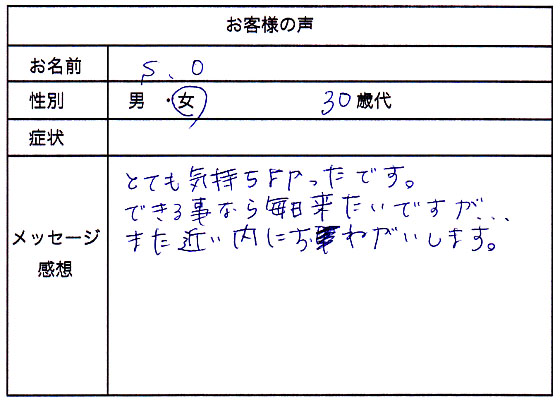 お客様の声
お名前 S、O
性別 男・女 30歳代
症状
メッセージ
感想
とても気持ちよかったです。
できる事なら毎日来たいですが、、、
また近い内におねがいします。